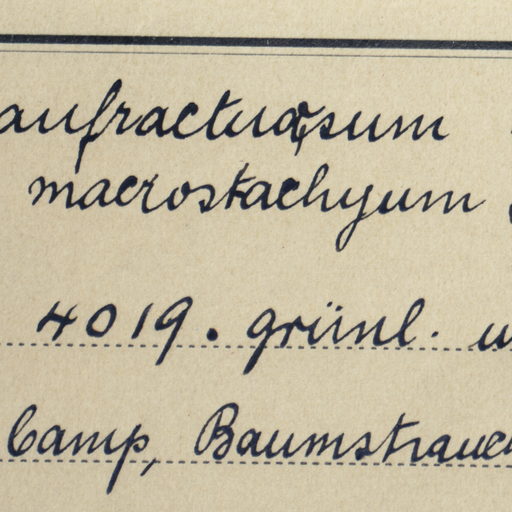 anfractuosum
macrostachyum
4019. grünl.
Camp, Baumstrauch